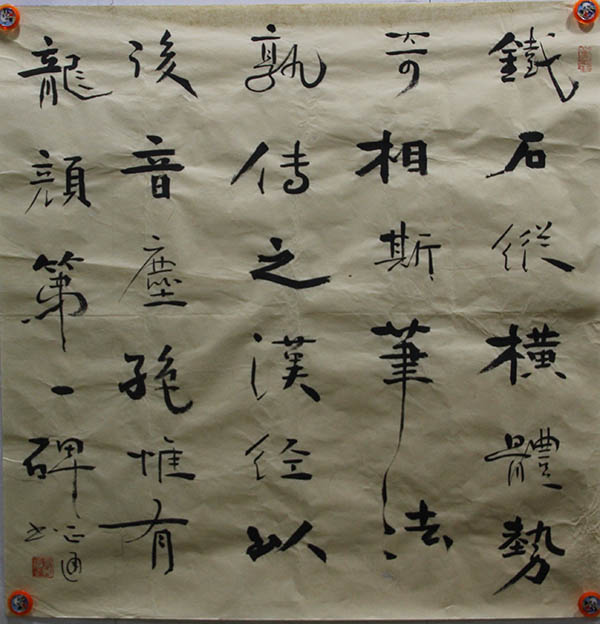 鐵石縱橫體勢
奇相斯筆法
孰传之漢经以
後音塵絕惟有
龍顏第一碑
正通
书